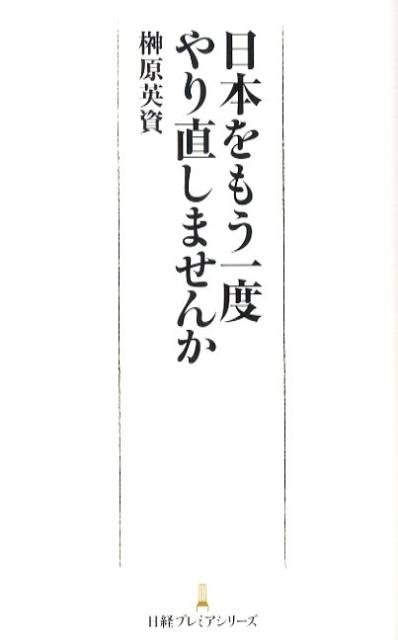 日本をもう一度
やり直しませんか
榊原英資
日経プレミアシリーズ